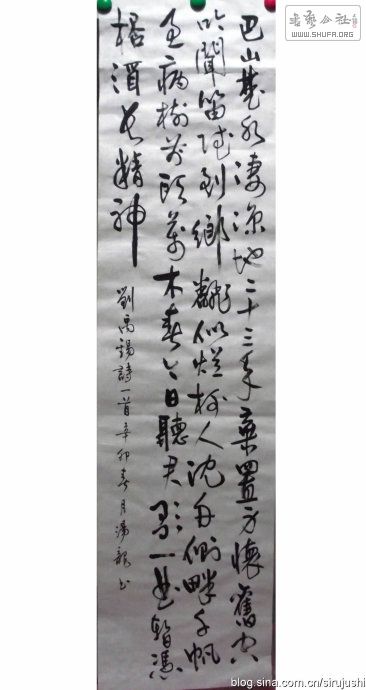 书艺公社
WWW.SHUFA.ORG
巴山楚水淒涼地二十三年棄置身懷舊空
吟聞笛賦到鄉翻似爛柯人沈舟側畔千帆
過病樹前頭萬木春今日聽君歌一曲暫憑
杯酒長精神
劉禹錫詩一首辛卯春月湯龍书
blog.sina.com.cn/sirujushi